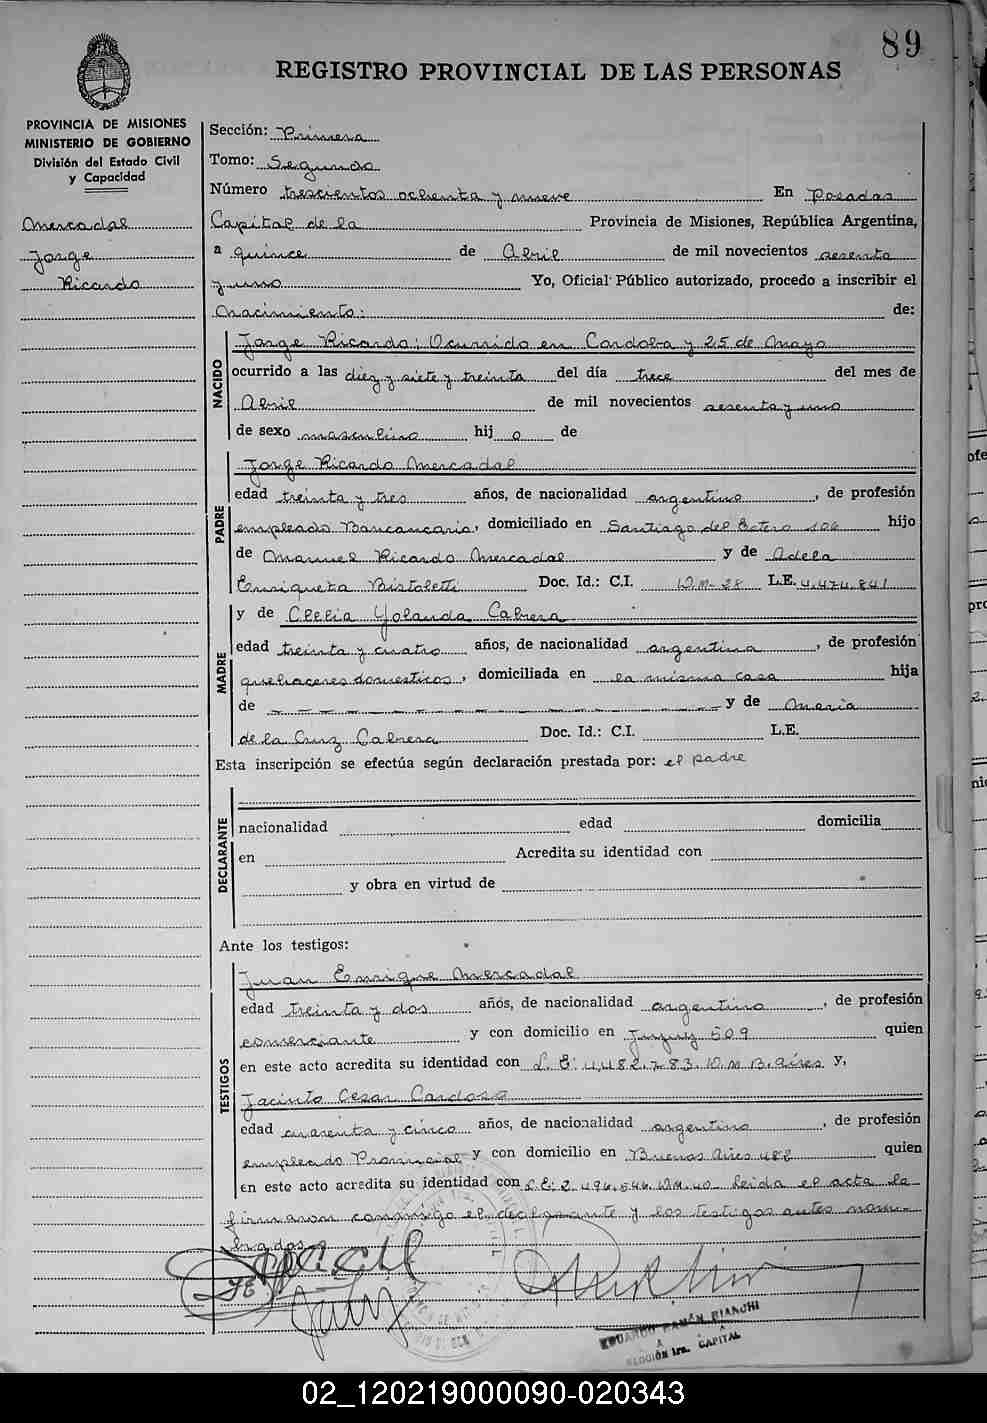 89
REGISTRO PROVINCIAL DE LAS PERSONAS
PROVINCIA DE MISIONES
MINISTERIO DE GOBIERNO
División del Estado Civil
y Capacidad
Mercadal
Jorge
Ricardo
Sección: Primera
Tomo: Segundo
Número trescientos ochenta y nueve En Posadas
Capital de la Provincia de Misiones, República Argentina,
a quince de Abril de mil novecientos sesenta
y uno Yo, Oficial Público autorizado, procedo a inscribir el
Nacimiento: de:
NACIDO
Jorge Ricardo: Ocurrido en Cordoba y 25 de Mayo
ocurrido a las diez y siete y treinta del día trece del mes de
Abril de mil novecientos sesenta y uno
de sexo masculino hijo de
PADRE
Jorge Ricardo Mercadal
edad treinta y tres años, de nacionalidad argentino, de profesión
empleado Bancancario, domiciliado en Santiago del Estero 106 hijo
de Manuel Ricardo Mercadal y de Adela
Enriqueta Bistoletti Doc. Id.: C.I. D.M-28 L.E. 4.474.841
MADRE
y de Clelia Yolanda Cabrera
edad treinta y cuatro años, de nacionalidad argentina, de profesión
quehaceres domesticos, domiciliada en la misma casa hija
de — — — — — — — — — — — — — — y de Maria
de la Cruz Cabrera Doc. Id.: C.I. L.E.
Esta inscripción se efectúa según declaración prestada por: el padre
DECLARANTE
nacionalidad edad domicilia
en Acredita su identidad con
y obra en virtud de
Ante los testigos:
TESTIGOS
Juan Enrique Mercadal
edad treinta y dos años, de nacionalidad argentino, de profesión
comerciante y con domicilio en Jujuy 509 quien
en este acto acredita su identidad con L.E: 4.482.783.D.M B.Aires y,
Jacinto Cesar Cardoso
edad cuarenta y cinco años, de nacionalidad argentino, de profesión
empleado Provincial y con domicilio en Buenos Aires 488 quien
en este acto acredita su identidad con L.E: 2.496.546.D.M.40 Leida el acta la
firmaron conmigo el declarante y los testigos antes nom-
brados
EDUARDO RAMÓN BIANCHI
SECCIÓN 1ra. CAPITAL
02_120219000090-020343